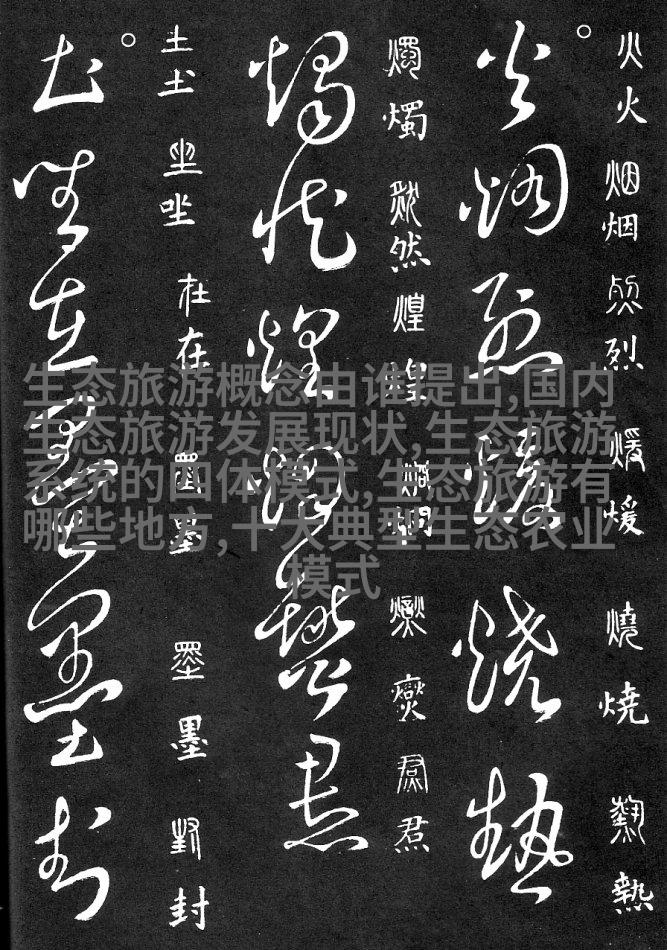 火火烟烟烈烈煖煖燒燒熱熱
火烟烈煖燒熱
燭燭然然煌煌燮燮焄焄
燭然煌燮焄
土土坐坐在在墨墨封封
土坐在墨封
生态旅游概念由谁提出,国内
生态旅游发展现状,生态旅游
系统的四体模式,生态旅游有
哪些地方,十大典型生态农业
模式